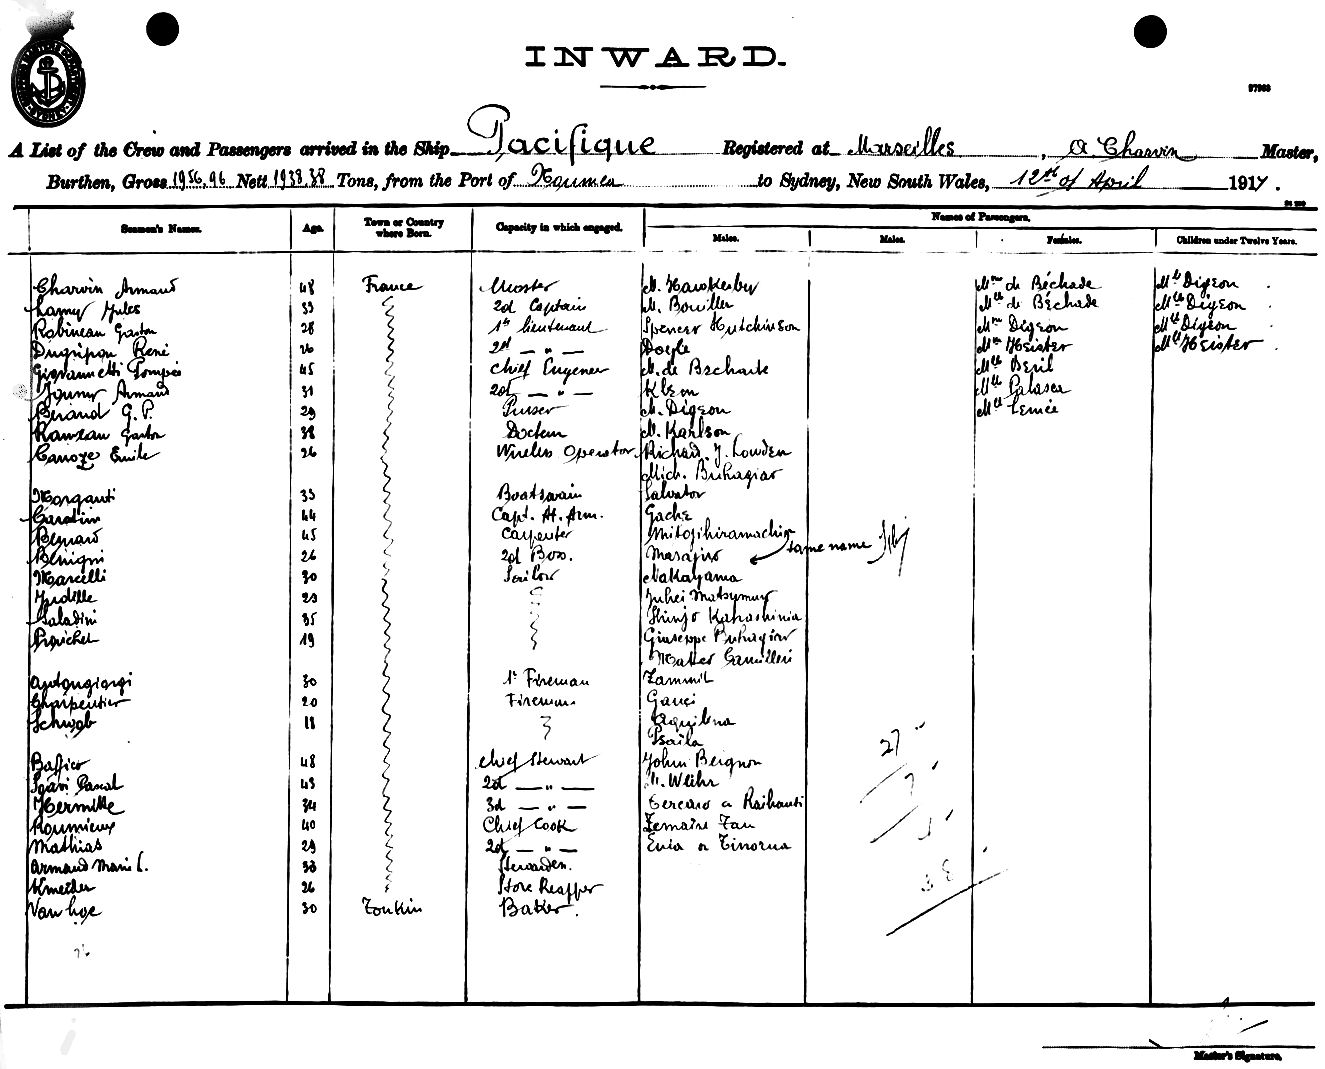 INWARD.
A List of the Crew and Passengers arrived in the Ship Pacifique Registered at Marseilles, A Charvin Master,
Burthen, Gross 1956,96 Nett 1938.38 Tons, from the Port of Noumea to Sydney, New South Wales, 12th of April 1917.
Names of Passengers.
Seamen's Names. Age. Town or Country where Born. Capacity in which engaged. Males. Males. Females. Children under Twelve Years.
Charvin Armand 48 France Master M. Hawkesber Mme de Béchade Mlle Digeon
Lamy Jules 33 2d Captain M. Bouiller Mlle de Béchade Mlle Digeon
Robineau Gaston 28 1st lieutenant Spencer Hutchinson Mme Digeon Mlle Digeon
Dugripon René 26 2d — " — Doyle Mme Heister Mlle Heister
Giovannetti Pompée 45 chief Engeneer M. de Bechade Mlle Desil
Armand 31 2d — " — Kleon Mlle
Beraud G. P. 29 Purser M. Digeon Mlle
Rameau Gaston 38 Docteur M. Karlson
Canoze Emile 26 Wireless Operator Richard J. Lowden
Mich. Buhagiar
Morganti 33 Boatswain Salvator
Cardini 44 Capt. At. Arm. Gache
Benard 45 Carpenter Mitojihiramachir
Benigni 26 2d Bos. Masajiro same name
Marcelli 30 Sailor Nakayama
Judille 23 Juhei Matsymur
Saladini 35 Shinjo Kanashinia
Prouchet 19 Giuseppe Buhagiar
Matteo Camilleri
Antongiorgi 30 1st Fireman Zammit
Charpentier 20 Fireman Gauci
Schwob 18 Aquilina
Psaila
27
Baffico 48 chief Stewart John Beignon
Pascal 43 2d — " — M. Weihr
7
Hermitte 34 3d — " — Tercaro a Raihauti
Roumieux 40 Chief Cook Lemaire Tau
Mathias 29 2d — " — Enia or Tinorua
Armand Marie L. 38 Stewarden.
38
Kmetter 26 Store Keapper
Van hoe 30 Tonkin Baker.
Master's Signature.